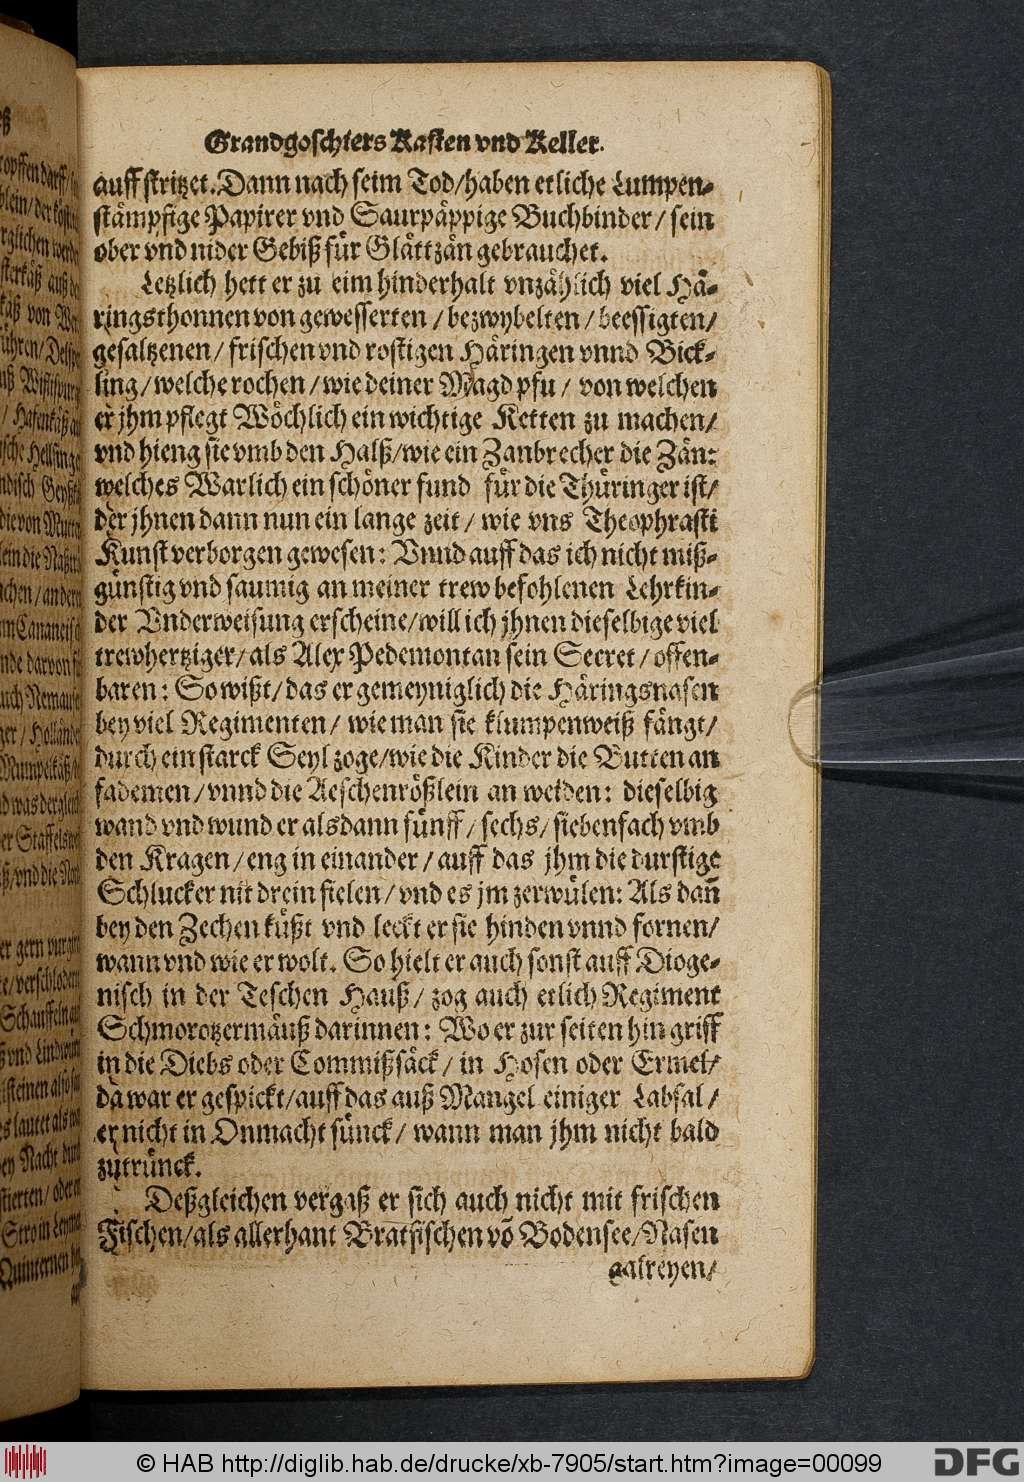 Grandgoschiers Kasten vnd Keller.
auff stritzet. Dann nach seim Tod/haben etliche Lumpen-
stämpfige Papirer vnd Saurpäppige Buchbinder/ sein
ober vnd nider Gebiß für Glättzän gebrauchet.
Letzlich hett er zu eim hinderhalt vnzählich viel Hä-
ringsthonnen von gewesserten / bezwybelten / beessigten/
gesaltzenen / frischen vnd rostigen Häringen vnnd Bick-
ling/welche rochen / wie deiner Magd pfu / von welchen
er jhm pflegt Wöchlich ein wichtige Ketten zu machen/
vnd hieng sie vmb den Halß/wie ein Zanbrecher die Zän:
welches Warlich ein schöner fund für die Thüringer ist/
der jhnen dann nun ein lange zeit / wie vns Theophrasti
Kunst verborgen gewesen: Vnnd auff das ich nicht miß-
günstig vnd saumig an meiner trew befohlenen Lehrkin-
der Vnderweisung erscheine/will ich jhnen dieselbige viel
trewhertziger/als Alex Pedemontan sein Secret/offen-
baren: So wißt/das er gemeyniglich die Häringsnasen
bey viel Regimenten/ wie man sie klumpenweiß fängt/
durch ein starck Seyl zoge/wie die Kinder die Butten an
fademen/vnnd die Aeschenrößlein an weiden: dieselbig
wand vnd wund er alsdann fünff/sechs/siebenfach vmb
den Kragen/eng in einander/auff das jhm die durstige
Schlucker nit drein fielen/vnd es jm zerwülen: Als dañ
bey den Zechen küßt vnd leckt er sie hinden vnnd fornen/
wann vnd wie er wolt. So hielt er auch sonst auff Dioge-
nisch in der Teschen Hauß/zog auch etlich Regiment
Schmorotzermäuß darinnen: Wo er zur seiten hin griff
in die Diebs oder Commißsäck/ in Hosen oder Ermel/
da war er gespickt/auff das auß Mangel einiger Labsal/
er nicht in Onmacht sünck/ wann man jhm nicht bald
zutrünck.
Deßgleichen vergaß er sich auch nicht mit frischen
Fischen/als allerhant Bratfischen võ Bodensee/Nasen
aalreyen/
© HAB http://diglib.hab.de/drucke/xb-7905/start.htm?image=00099
DFG